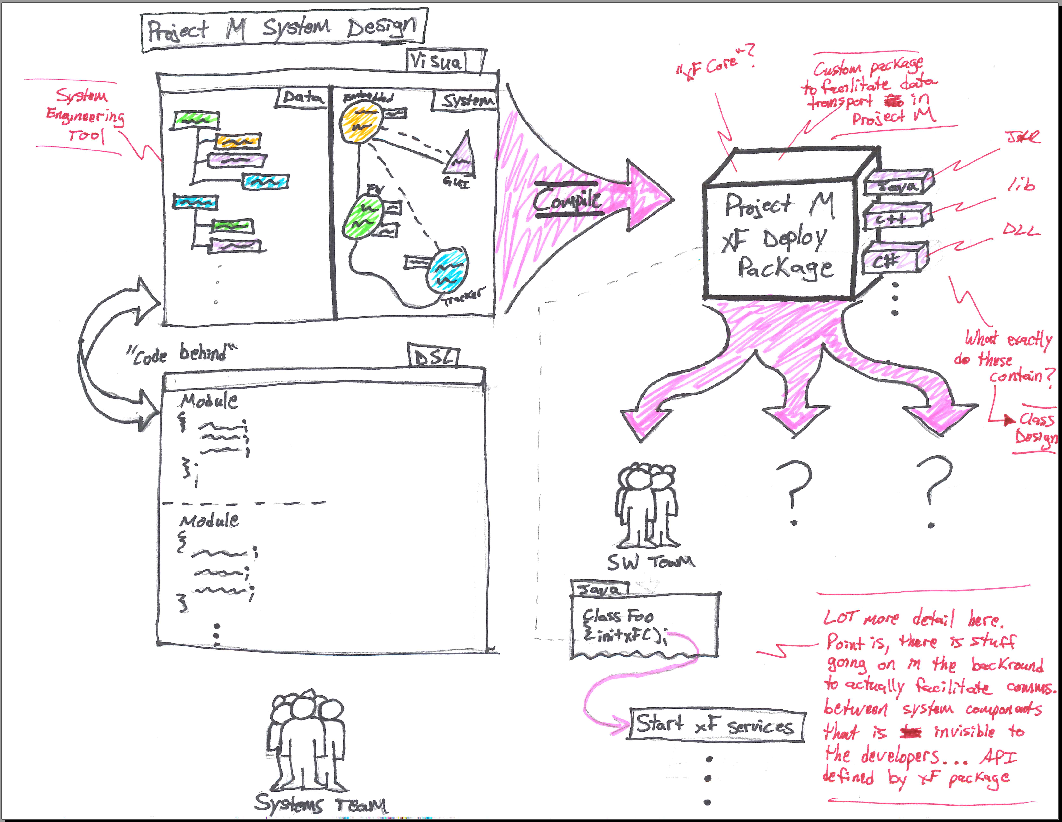 Project M System Design
Visual
System
Engineering
Tool
Data
System
Embedded
GUI
EV
Tracker
Compile
"xF Core"?
Custom package
to facilitate data
transport in
Project M
Project M
xF Deploy
Package
Java
C++
C#
JAR
lib
DLL
What exactly
do these
contain?
Class
Design
"Code behind"
DSL
Module
{
};
Module
{
}
Systems Team
?
?
SW Team
Java
Class Foo
{ initxF();
Start xF services
LOT more detail here.
Point is, there is stuff
going on in the backround
to actually facilitate comms.
between system components
that is invisible to
the developers... API
defined by xF package